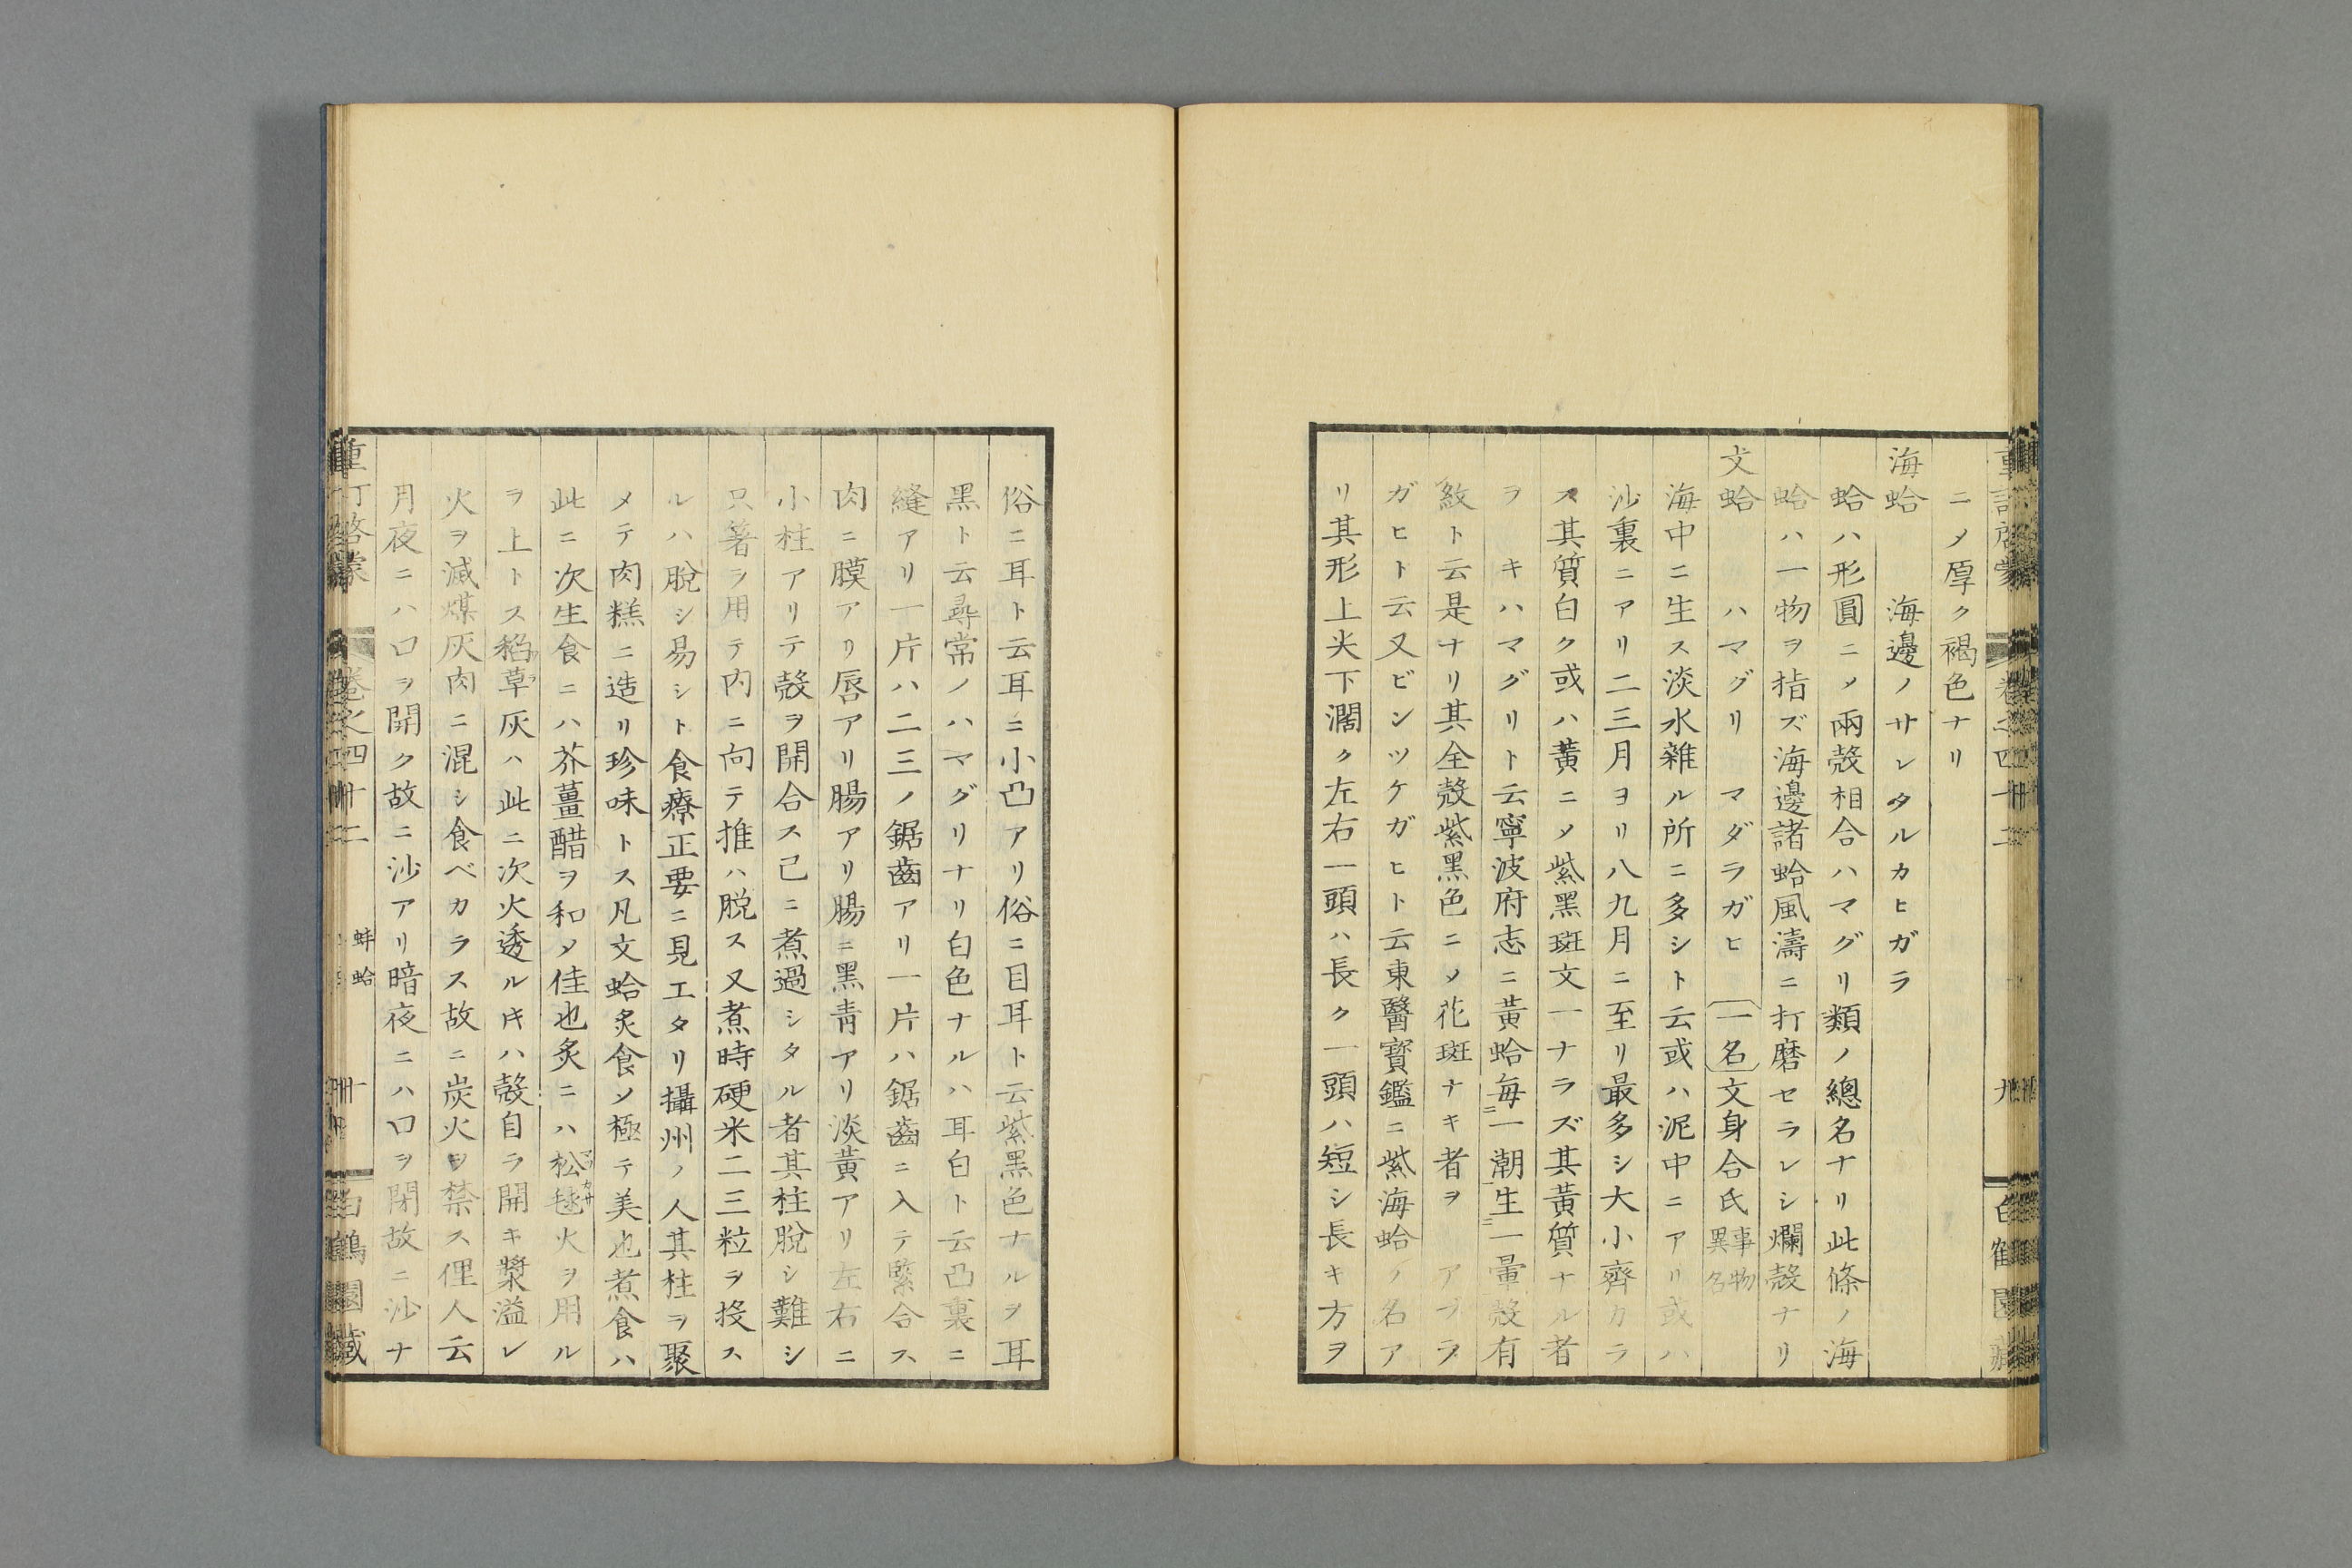 ニ〆厚ク褐色ナリ
海蛤　海邊ノサレタルカヒガラ
蛤ハ形圓ニ〆兩殼相合ハマグリ類ノ總名ナリ此條ノ海
蛤ハ一物ヲ指ズ海邊諸蛤風濤ニ打磨セラレシ爛殼ナリ
文蛤　ハマグリ　マダラガヒ　一名文身合氏事物異名
海中ニ生ス淡水雜ル所ニ多シト云或ハ泥中ニアリ或ハ
沙裏ニアリ二三月ヨリ八九月ニ至リ最多シ大小齊カラ
ス其質白ク或ハ黃ニ〆紫黑斑文一ナラズ其黃質ナル者
ヲ　キハマグリト云寧波府志ニ黃蛤每ニ一潮生ニ一暈殼有
紋ト云是ナリ其全殼紫黑色ニ〆花斑ナキ者ヲ　アブラ
ガヒト云又ビンツケガヒト云東醫寳鑑ニ紫海蛤ノ名ア
リ其形上尖下濶ク左右一頭ハ長ク一頭ハ短シ長キ方ヲ
俗ニ耳ト云耳ニ小凸アリ俗ニ目耳ト云紫黑色ナルヲ耳
黑ト云尋常ノハマグリナリ白色ナルハ耳白ト云凸裏ニ
縫アリ一片ハ二三ノ鋸齒アリ一片ハ鋸齒ニ入テ緊合ス
肉ニ膜アリ唇アリ腸アリ腸ニ黑靑アリ淡黃アリ左右ニ
小柱アリテ殼ヲ開合ス已ニ煮過シタル者其柱脫シ難シ
只箸ヲ用テ内ニ向テ推ハ脱ス又煮時硬米二三粒ヲ投ス
ルハ脫シ易シト食療正要ニ見エタリ攝州ノ人其柱ヲ聚
メテ肉糕ニ造リ珍味トス凡文蛤炙食ソ極テ美也煮食ハ
此ニ次生食ニハ芥薑醋ヲ和〆佳也炙ニハ松毬火ヲ用ル
ヲ上トス稻草灰ハ此ニ次火透ルキハ殼自ラ開キ漿溢レ
火ヲ滅煤灰肉ニ混シ食ベカラス故ニ炭火ヲ禁ス俚人云
月夜ニハ口ヲ開ク故ニ沙アリ暗夜ニハ口ヲ閉故ニ沙ナ
卷之四十二　蚌蛤　十